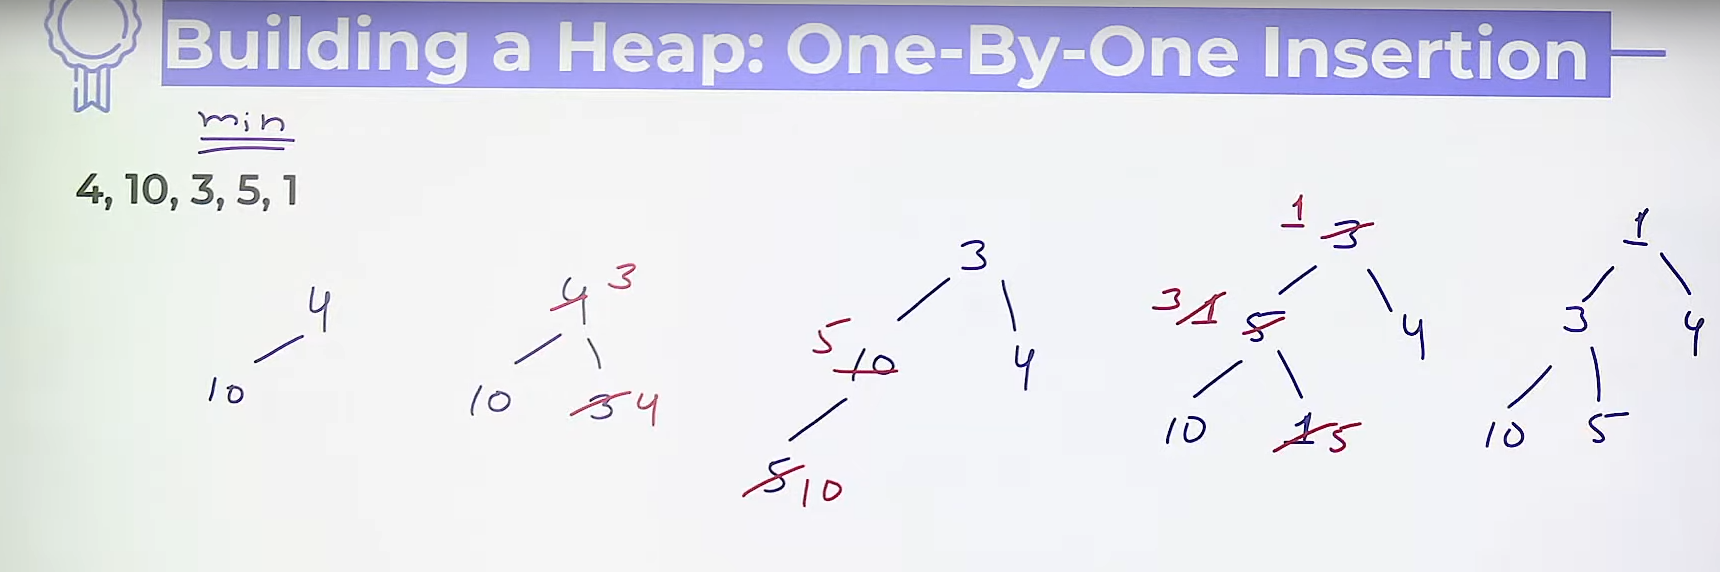 Building a Heap: One-By-One Insertion
min
4, 10, 3, 5, 1
4
10
4 3
10 3 4
3
5 10 4
5 10
1 3
3 1 5 4
10 1 5
1
3 4
10 5